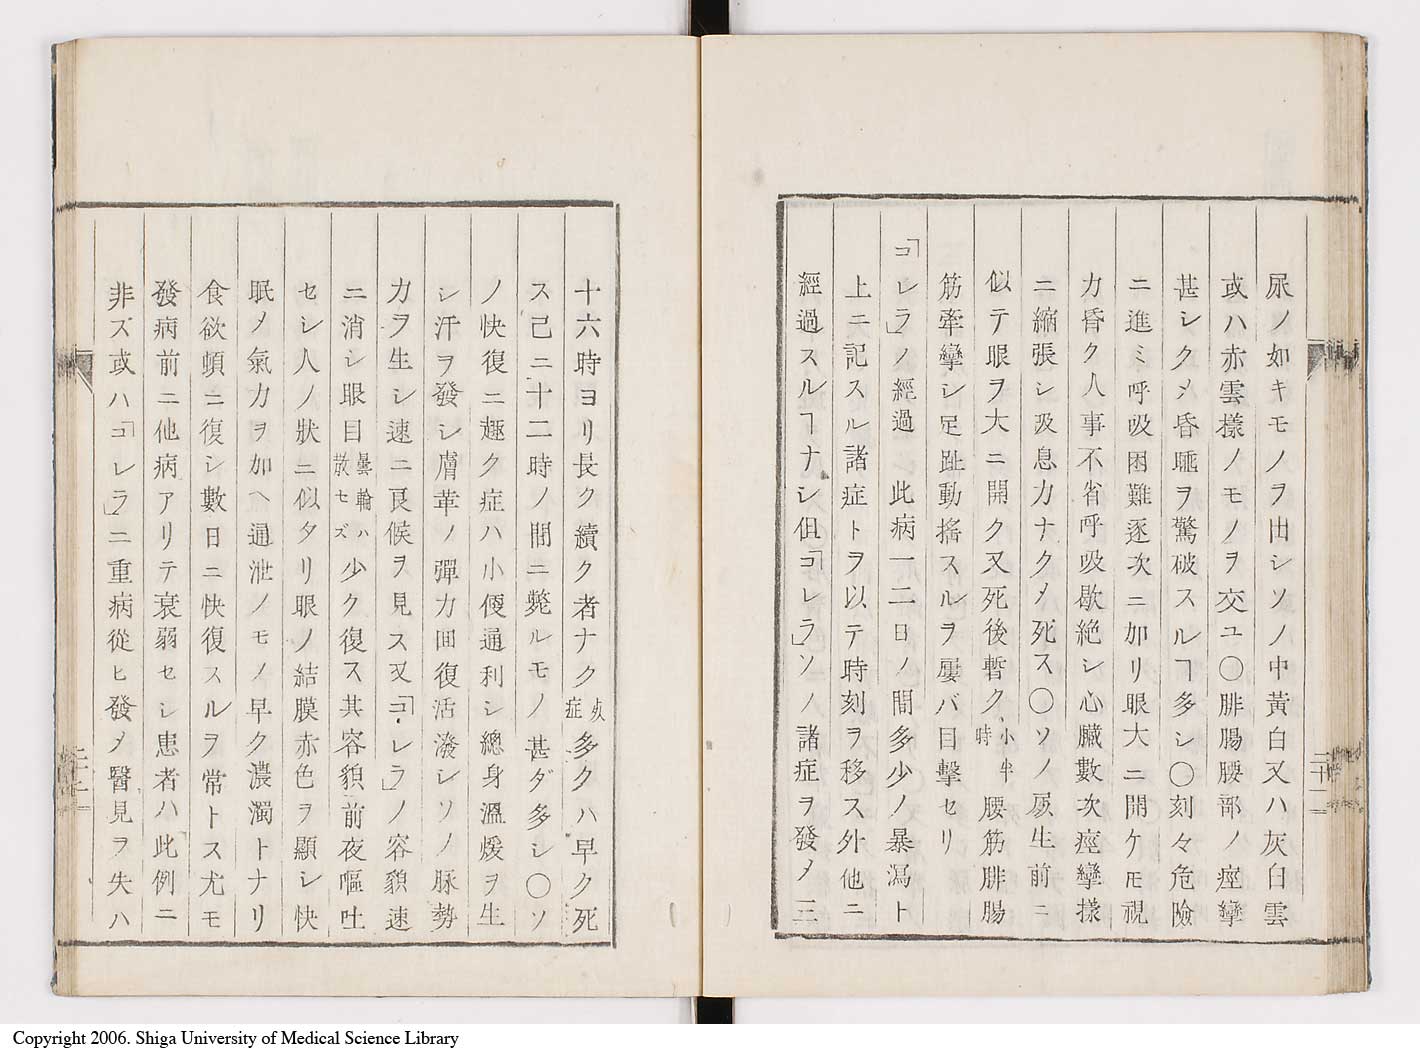 尿ノ如キモノヲ出シソノ中黃白又ハ灰白雲
或ハ赤雲樣ノモノヲ交ユ〇腓腸腰部ノ痙攣
甚シクメ昏睡ヲ驚破スルヿ多シ〇刻々危險
ニ進ミ呼吸困難逐次ニ加リ眼大ニ開ケ𪜈視
力昏ク人事不省呼吸歇絕シ心臟數次痙攣樣
ニ縮張シ吸息力ナクメ死ス〇ソノ屍生前ニ
似テ眼ヲ大ニ開ク又死後暫ク小半時腰筋腓腸
筋牽攣シ足趾動搖スルヲ屢バ目擊セリ
「コレラ」ノ經過 此病一二日ノ間多少ノ暴瀉ト
上ニ記スル諸症トヲ以テ時刻ヲ移ス外他ニ
經過スルヿナシ但「コレラ」ソノ諸症ヲ發メ三
二十一
十六時ヨリ長ク續ク者ナク炎症多クハ早ク死
ス已ニ十二時ノ間ニ斃ルモノ甚ダ多シ〇ソ
ノ快復ニ趣ク症ハ小便通利シ總身溫煖ヲ生
シ汗ヲ發シ膚革ノ彈力回復活潑シソノ脉勢
力ヲ生シ速ニ良候ヲ見ス又「コレラ」ノ容貌速
ニ消シ眼目暈輪ハ散セズ少ク復ス其容貌前夜嘔吐
セシ人ノ狀ニ似タリ眼ノ結膜赤色ヲ顯シ快
眠メ氣力ヲ加ヘ通泄ノモノ早ク濃濁トナリ
食欲頓ニ復シ數日ニ快復スルヲ常トス尤モ
發病前ニ他病アリテ衰弱セシ患者ハ此例ニ
非ズ或ハ「コレラ」ニ重病從ヒ發メ醫見ヲ失ハ
二十二
Copyright 2006. Shiga University of Medical Science Library